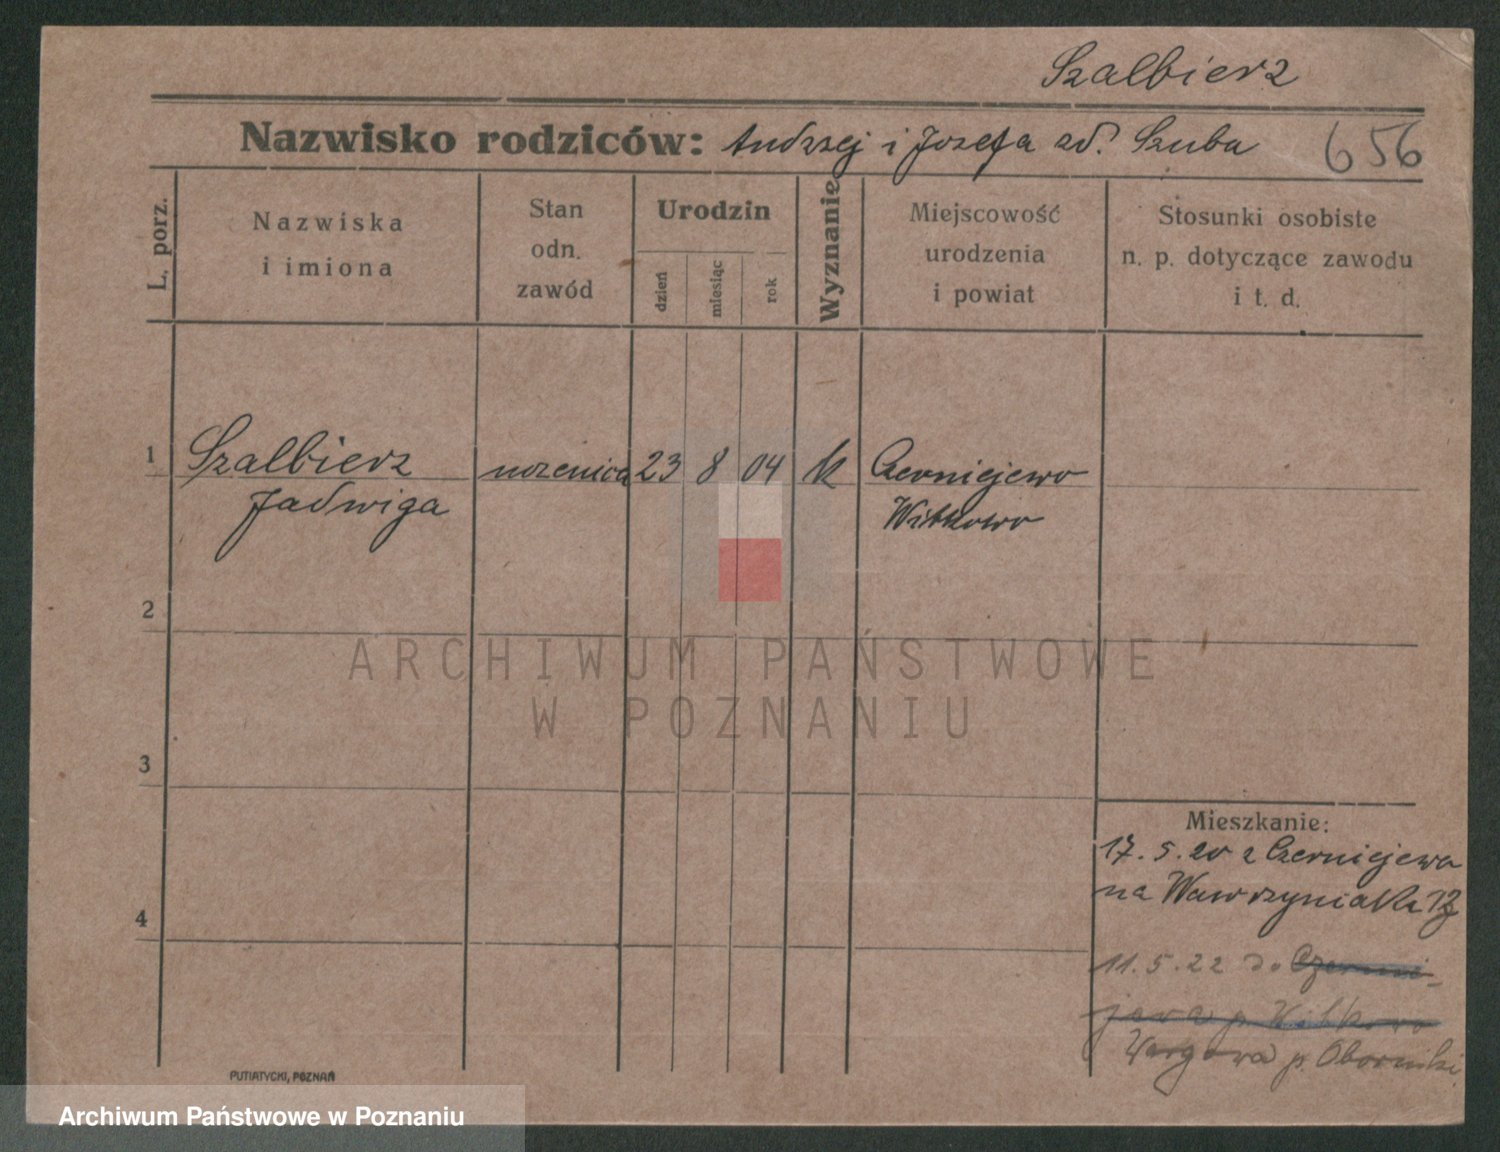 Szalbierz
Nazwisko rodziców: Andrzej i Jozefa zd. Szuba 656
L. porz.
Nazwiska
i imiona
Stan
odn.
zawód
Urodzin
dzień
miesiąc
rok
Wyznanie
Miejscowość
urodzenia
i powiat
Stosunki osobiste
n. p. dotyczące zawodu
i t. d.
1 Szalbierz uczenica 23 8 04 k Czerniejewo
Jadwiga Witkowo
2
3
4
Mieszkanie:
17. 5. 20 z Czerniejewa
na Wawrzyniaka
11. 5. 22 do Czernie-
jewa p. Witkowo
Wargowa p. Oborniki
PUTIATYCKI, POZNAŃ
ARCHIWUM PAŃSTWOWE
W POZNANIU
Archiwum Państwowe w Poznaniu